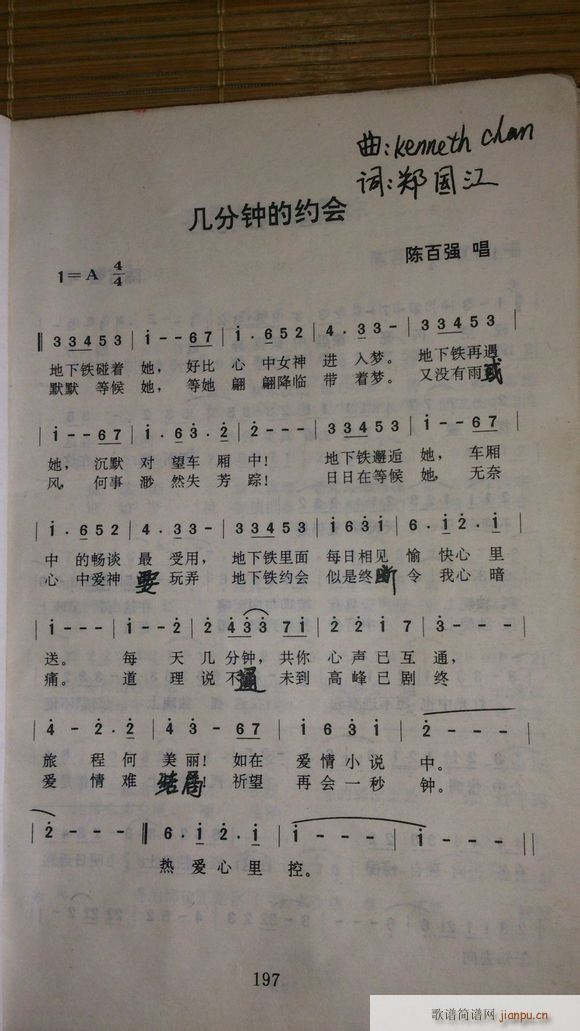 曲:kenneth chan
词:郑国江
几分钟的约会
陈百强 唱
1=A 4/4
‖ 3 3 4 5 3 | i - - 6 7 | i . 6 5 2 | 4 . 3 3 - | 3 3 4 5 3 |
地下铁碰着 她, 好比 心 中女神 进 入梦。 地下铁再遇
默默 等候 她, 等她 翩 翩降临 带 着梦。 又没有雨或
| i - - 6 7 | i . 6 3 . 2 | 2 - - - | 3 3 4 5 3 | i - - 6 7 |
她, 沉默 对 望车 厢 中! 地下铁邂逅 她, 车厢
风, 何事 渺 然失 芳 踪! 日日在等候 她, 无奈
| i . 6 5 2 | 4 . 3 3 - | 3 3 4 5 3 | i 6 3 i | 6 . i 2 . i |
中 的畅谈 最 受用, 地下铁里面 每日相见 愉 快心 里
心 中爱神 要 玩弄 地下铁约会 似是终断 令 我心 暗
| i - - - | i - - 2 | 2 4 3 3 7 i | 2 2 i 7 | 3 - - - |
送。 每 天几分钟,共你 心声已互通,
痛。 道 理说不通 未到 高峰已剧终
| 4 - 2 . 2 | 4 3 - 6 7 | i 6 3 i | 2 - - - |
旅 程何 美丽! 如在 爱情小说 中。
爱 情难 结局! 祈望 再会一秒 钟。
| 2 - - - ‖ 6 . i 2 . i | i - - - | i - - - ‖
热 爱心里 控。
197
歌谱简谱网
jianpu.cn